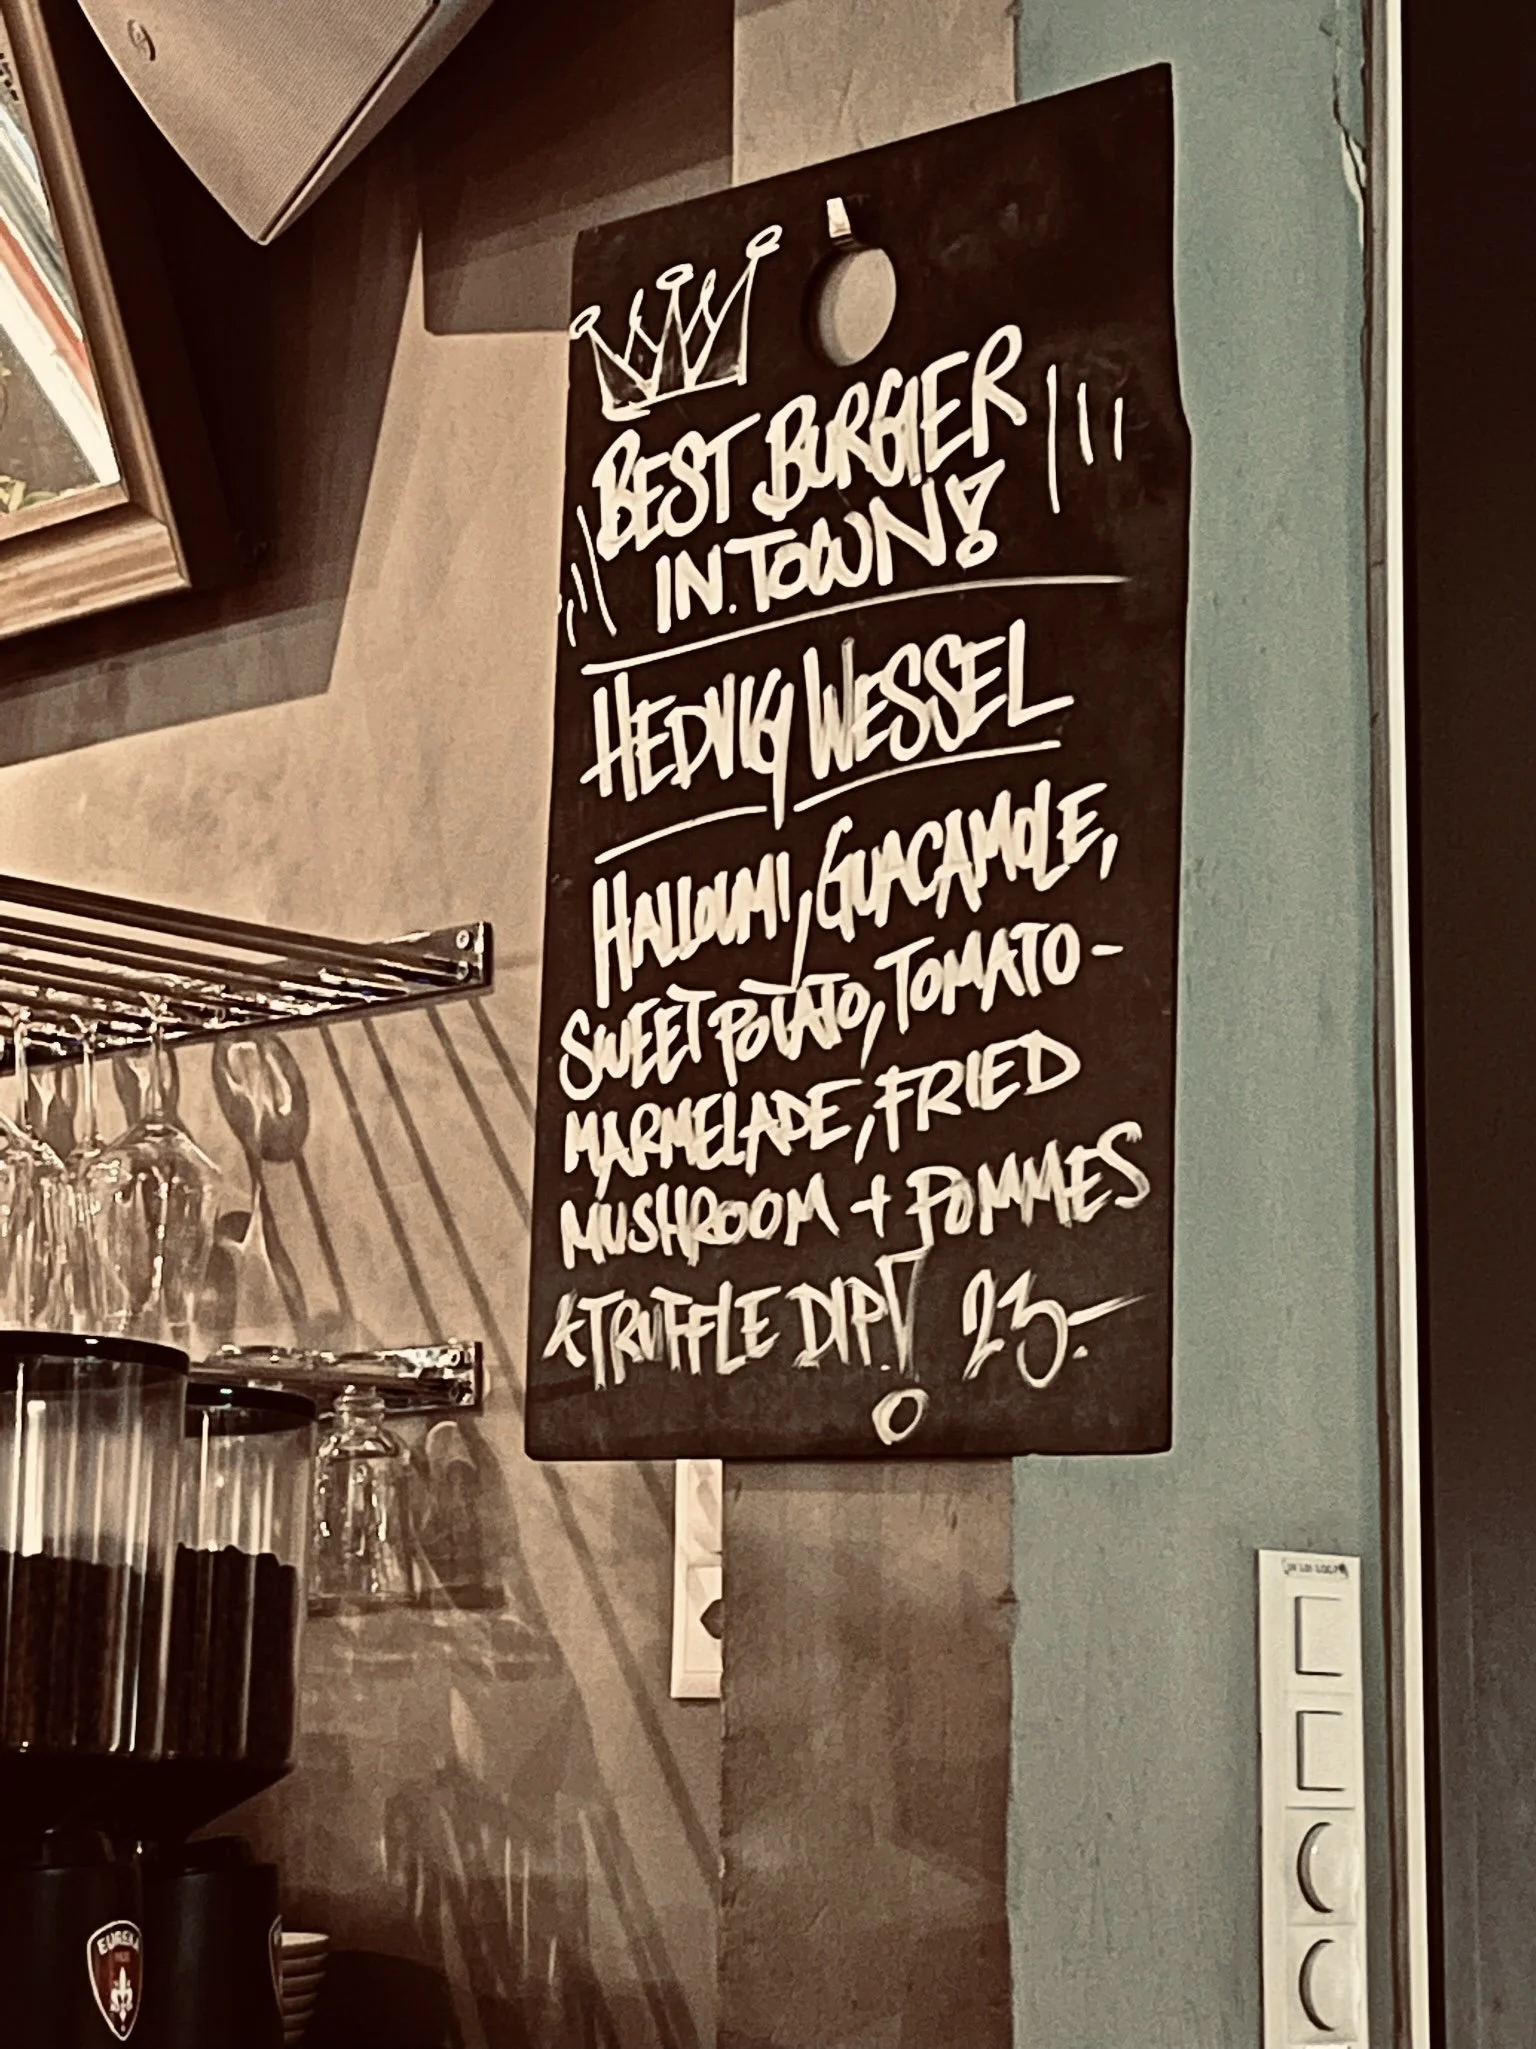 BEST BURGIER
IN.TOWN!
HEDVIG WESSEL
HALLOUMI, GUACAMOLE,
SWEET POTATO, TOMATO-
MARMELADE, FRIED
MUSHROOM + POMMES
& TRUFFLE DIP! 23.-
EUREKA